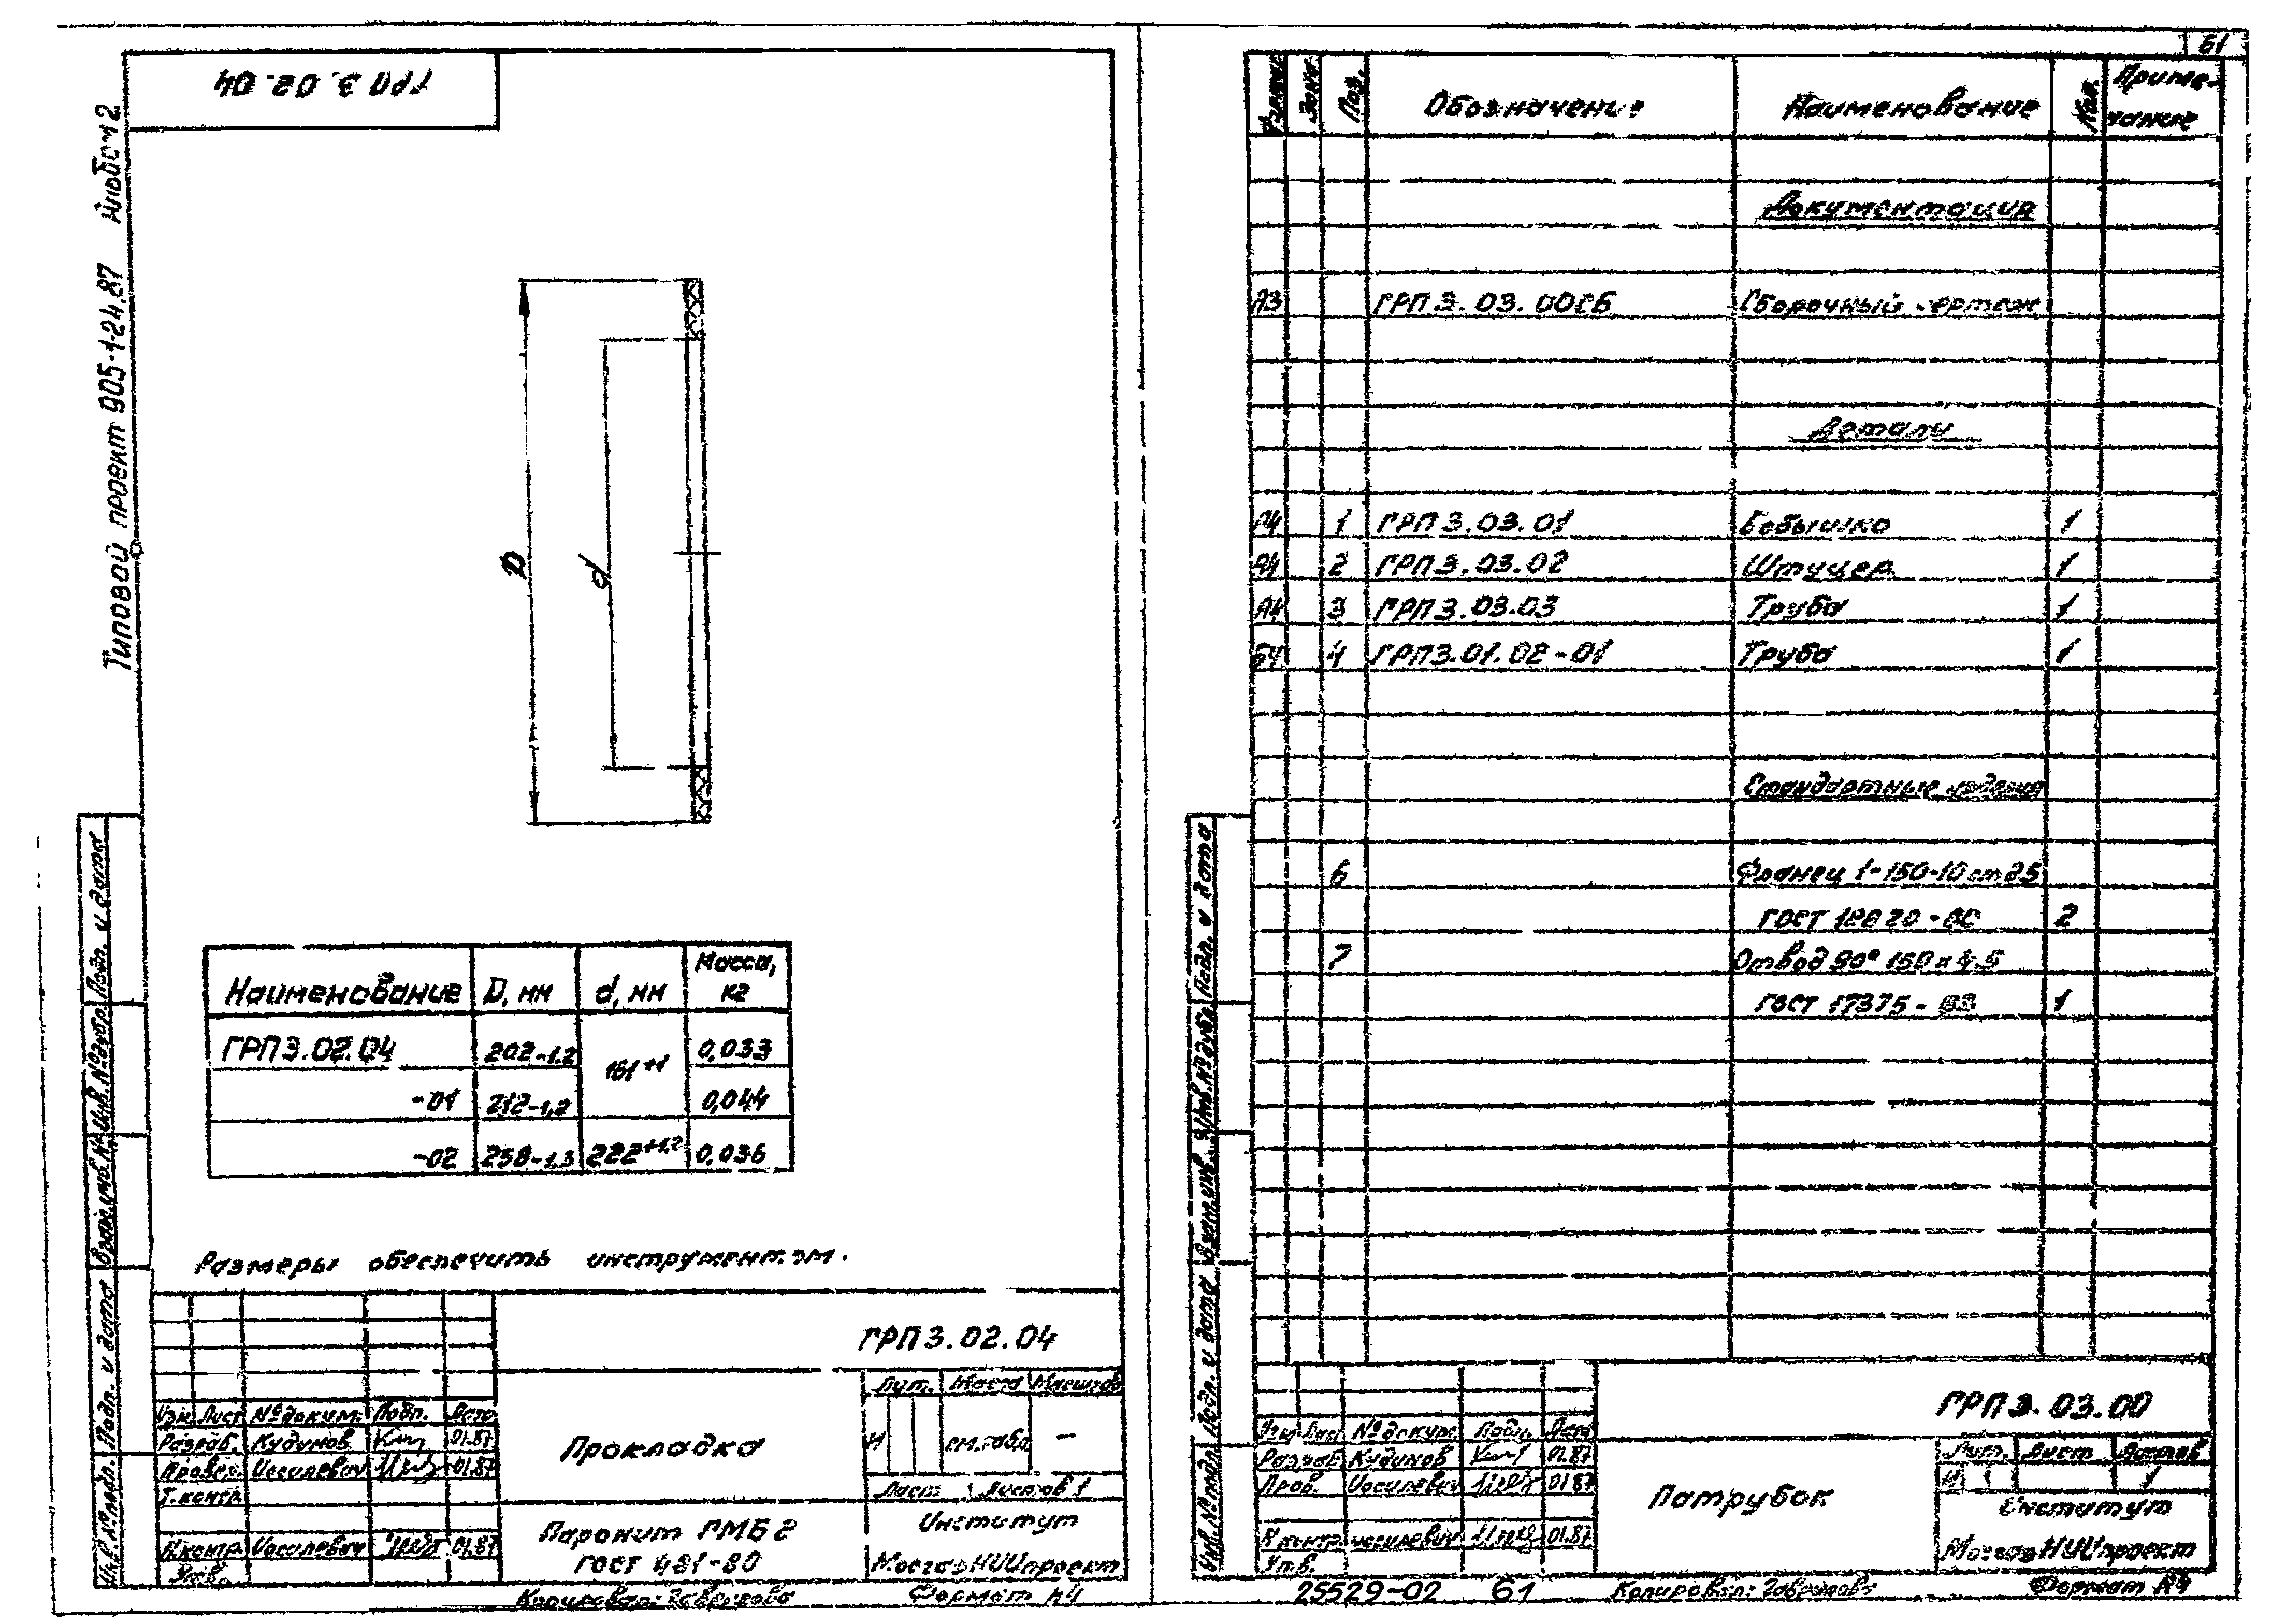 ГРП 3.02.04
Типовой проект 905-1-24.87 Альбом 2
D
d
Наименование D, мм d, мм Масса, кг
ГРП 3.02.04 202-1.2 161+1 0,033
-01 212-1,2 0,044
-02 258-1,3 222+1,2 0,036
Размеры обеспечить инструментом.
ГРП 3.02.04
Изм. Лист № докум. Подп. Дата
Разраб. Кудинов 01.87
Провер. Иосилевич 01.87
Т.контр.
Н.контр. Иосилевич 01.87
Утв.
Прокладка
Лит. Масса Масштаб
И см.табл. –
Лист Листов 1
Паронит ПМБ 2
ГОСТ 481-80
Институт
МосгазНИИпроект
Копировал: Гаврикова Формат А4
Инв.№ подл. Подп. и дата Взам.инв.№ Инв.№ дубл. Подп. и дата
61
Формат Зона Поз. Обозначение Наименование Кол. Примечание
Документация
А3 ГРП 3.03.00СБ Сборочный чертеж
Детали
А4 1 ГРП 3.03.01 Бобышка 1
А4 2 ГРП 3.03.02 Штуцер 1
А4 3 ГРП 3.03.03 Труба 1
БЧ 4 ГРП 3.01.02-01 Труба 1
Стандартные изделия
6 Фланец 1-150-10 ст 25
ГОСТ 12820-80 2
7 Отвод 90° 150х4,5
ГОСТ 17375-83 1
Инв.№ подл. Подп. и дата Взам.инв.№ Инв.№ дубл. Подп. и дата
ГРП 3.03.00
Изм. Лист № докум. Подп. Дата
Разраб. Кудинов 01.87
Пров. Иосилевич 01.87
Н.контр. Иосилевич 01.87
Утв.
Патрубок
Лит. Лист Листов
И 1
Институт
МосгазНИИпроект
25529-02 61 Копировал: Гаврикова Формат А4